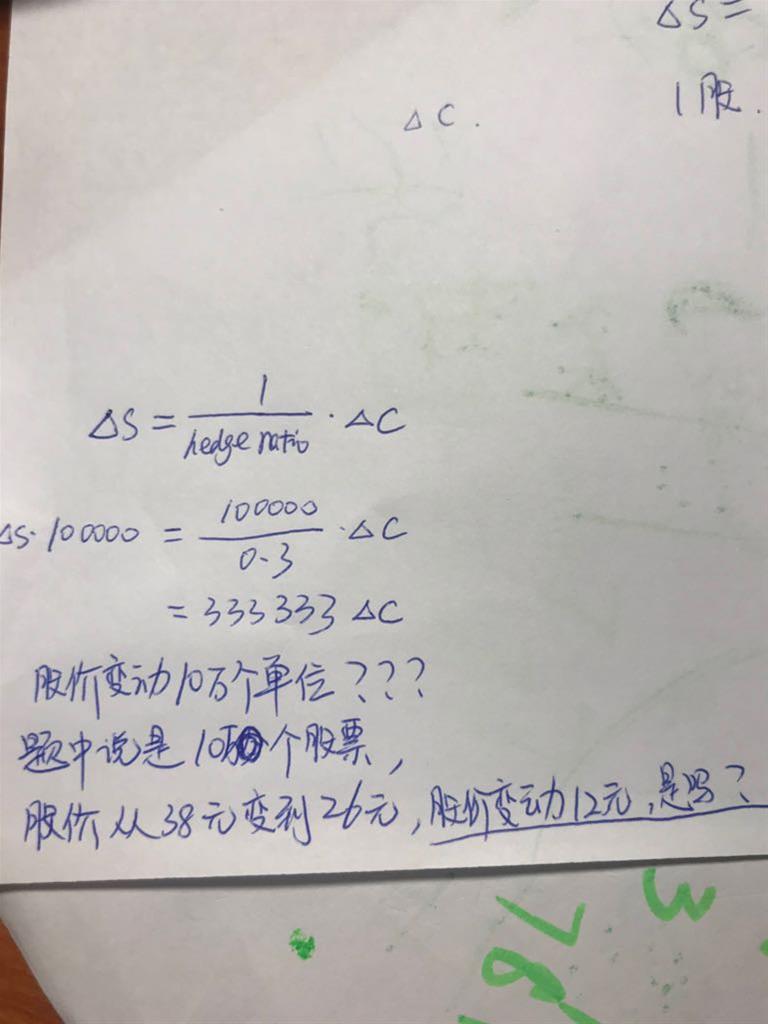 ΔS =
ΔC.
1股.
ΔS = 1/hedge ratio · ΔC
ΔS·100000 = 100000/0.3 · ΔC
= 333333 ΔC
股价变动10万个单位???
题中说是10万个股票,
股价从38元变到26元,股价变动12元,是吗?
3
78